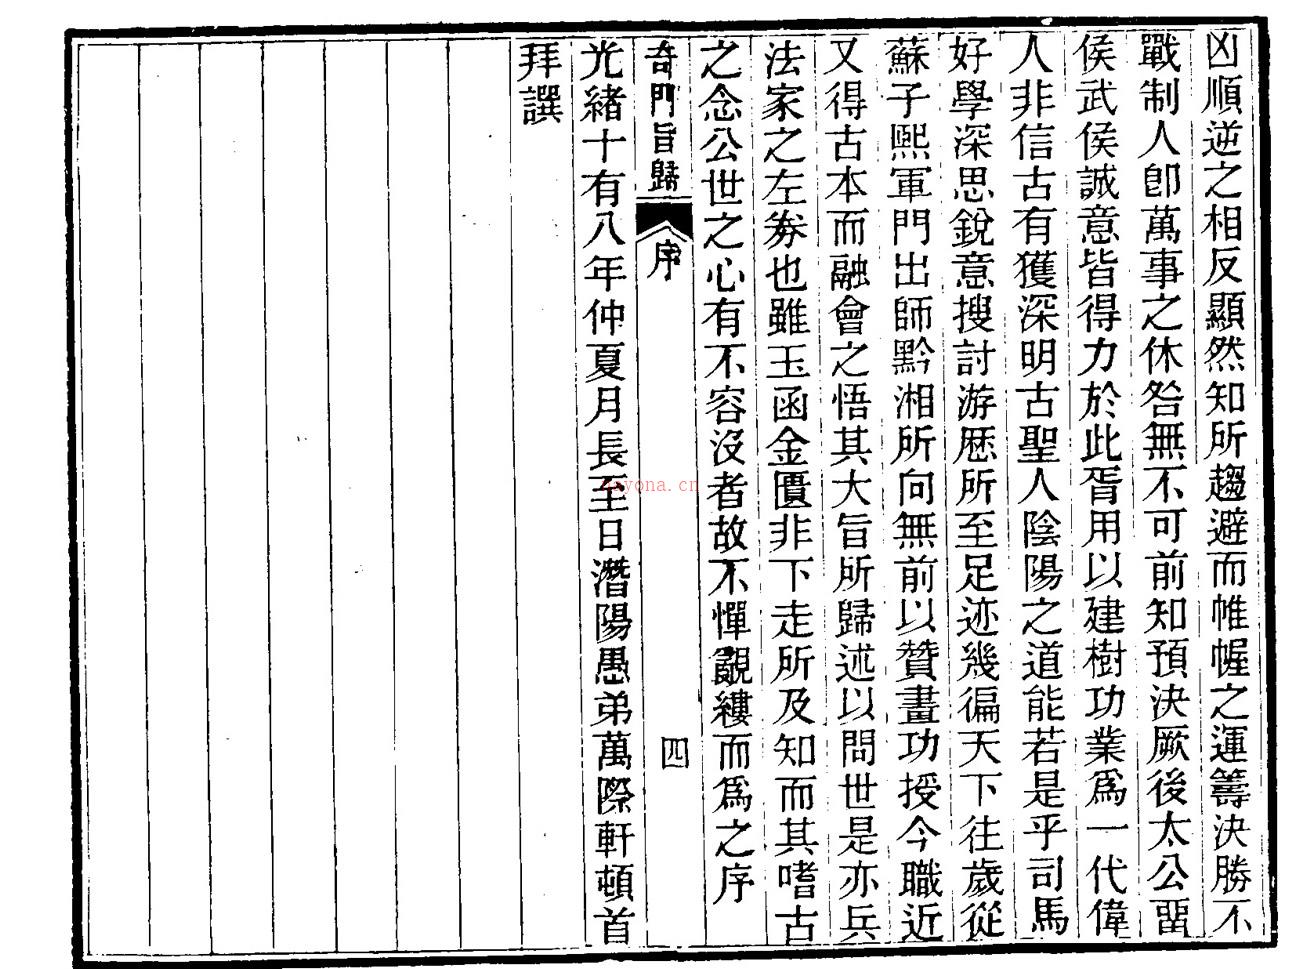 凶順逆之相反顯然知所趨避而帷幄之運籌決勝不
戰制人卽萬事之休咎無不可前知預決厥後太公畱
侯武侯誠意皆得力於此胥用以建樹功業爲一代偉
人非信古有獲深明古聖人陰陽之道能若是乎司馬
好學深思銳意搜討游歷所至足迹幾徧天下往歲從
蘇子熙軍門出師黔湘所向無前以贊畫功授今職近
又得古本而融會之悟其大旨所歸述以問世是亦兵
法家之左券也雖玉函金匱非下走所及知而其嗜古
之念公世之心有不容沒者故不憚覼縷而爲之序
奇門旨歸 序 四
光緒十有八年仲夏月長至日潛陽愚弟萬際軒頓首
拜譔